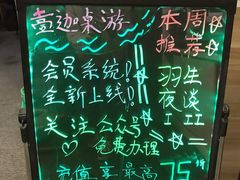 壹边桌游
会员系统!
全新上线!
关注公众号
♡免费办理
充值享最高75折
本周
推荐
羽生
夜谈
I II